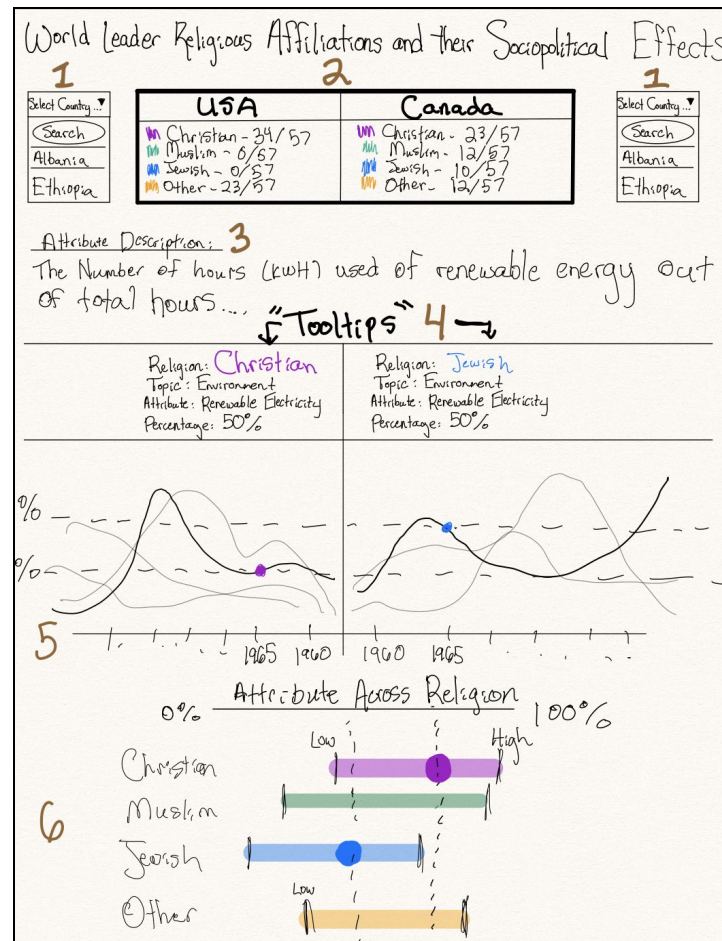 World Leader Religious Affiliations and their Sociopolitical Effects
1 2 1
Select Country...▼
Search
Albania
Ethiopia
USA
Christian - 34/57
Muslim - 0/57
Jewish - 0/57
Other - 23/57
Canada
Christian - 23/57
Muslim - 12/57
Jewish - 10/57
Other - 12/57
Select Country...▼
Search
Albania
Ethiopia
Attribute Description: 3
The Number of hours (KWH) used of renewable energy out
of total hours...
"Tooltips" 4
Religion: Christian
Topic: Environment
Attribute: Renewable Electricity
Percentage: 50%
Religion: Jewish
Topic: Environment
Attribute: Renewable Electricity
Percentage: 50%
%
%
5
1965 1960 1960 1965
Attribute Across Religion
0% 100%
Low High
Christian
Muslim
6
Jewish
Low
Other